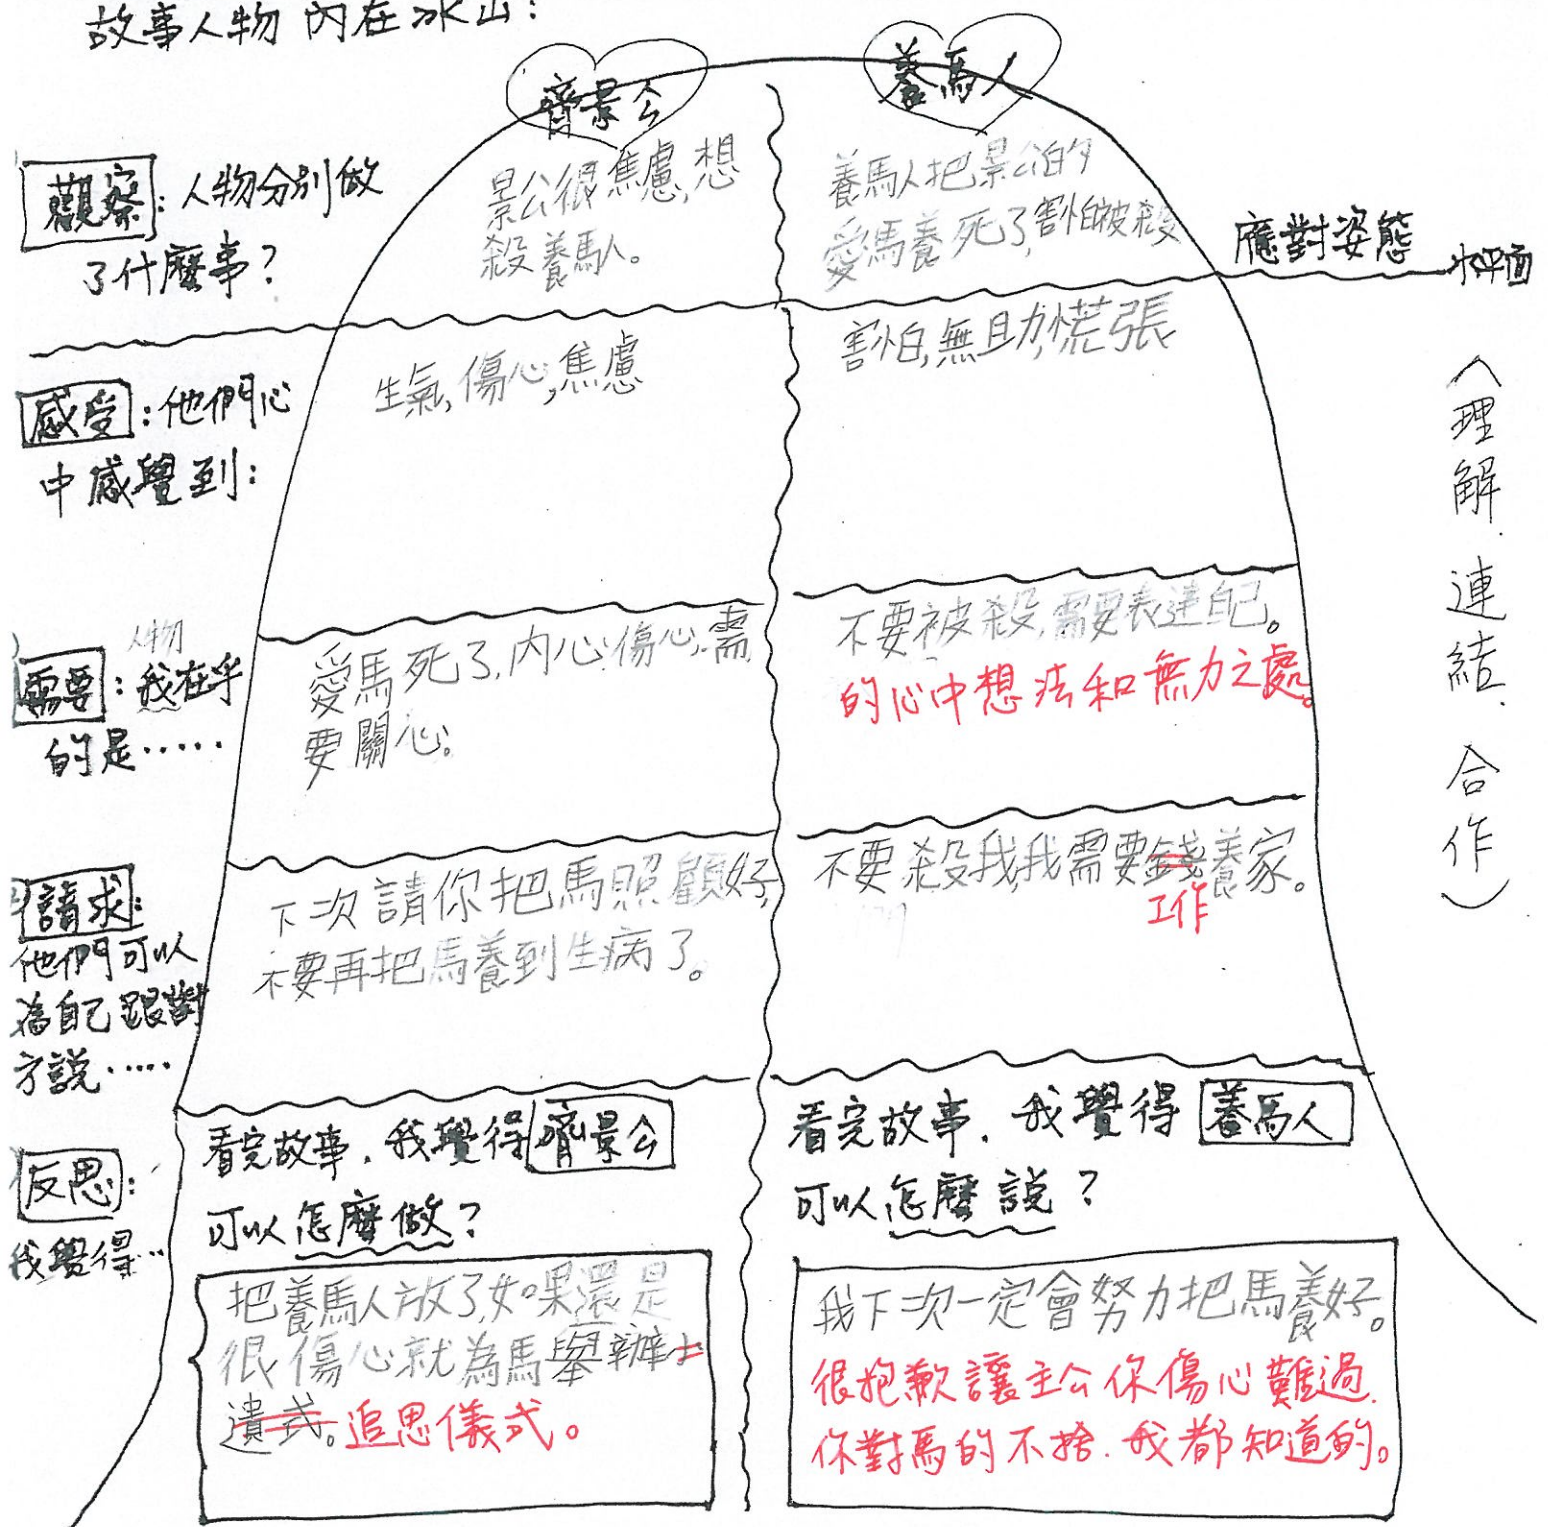 故事人物 內在冰山：
齊景公
養馬人
觀察：人物分別做
了什麼事？
景公很焦慮，想
殺養馬人。
養馬人把景公的
愛馬養死了，害怕被殺
應對姿態
水平面
感受：他們心
中感覺到：
生氣，傷心，焦慮
害怕，無助，慌張
（理解．連結．合作）
人物
需要：我在乎
的是‧‧‧‧‧
愛馬死了，內心傷心，需
要關心。
不要被殺，需要表達自己。
的心中想法和無力之處。
請求：
他們可以
為自己跟對
方說‧‧‧‧‧
下次請你把馬照顧好，
不要再把馬養到生病了。
不要殺我，我需要錢養家。
工作
反思：
我覺得‥
看完故事．我覺得齊景公
可以怎麼做？
把養馬人放了，如果還是
很傷心就為馬舉辦
遺式。追思儀式。
看完故事．我覺得養馬人
可以怎麼說？
我下次一定會努力把馬養好。
很抱歉讓主公你傷心難過．
你對馬的不捨．我都知道的。